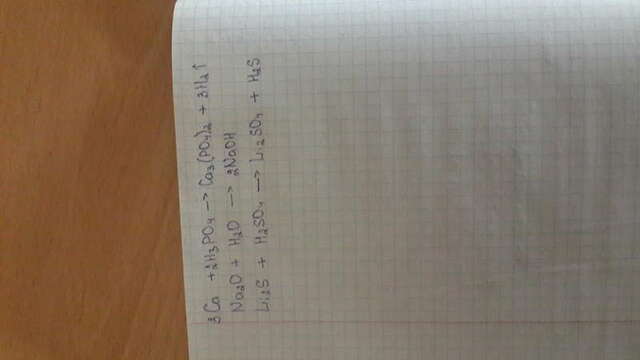 3Ca + 2H₃PO₄ —> Ca₃(PO₄)₂ + 3H₂↑
Na₂O + H₂O —> 2NaOH
Li₂S + H₂SO₄ —> Li₂SO₄ + H₂S